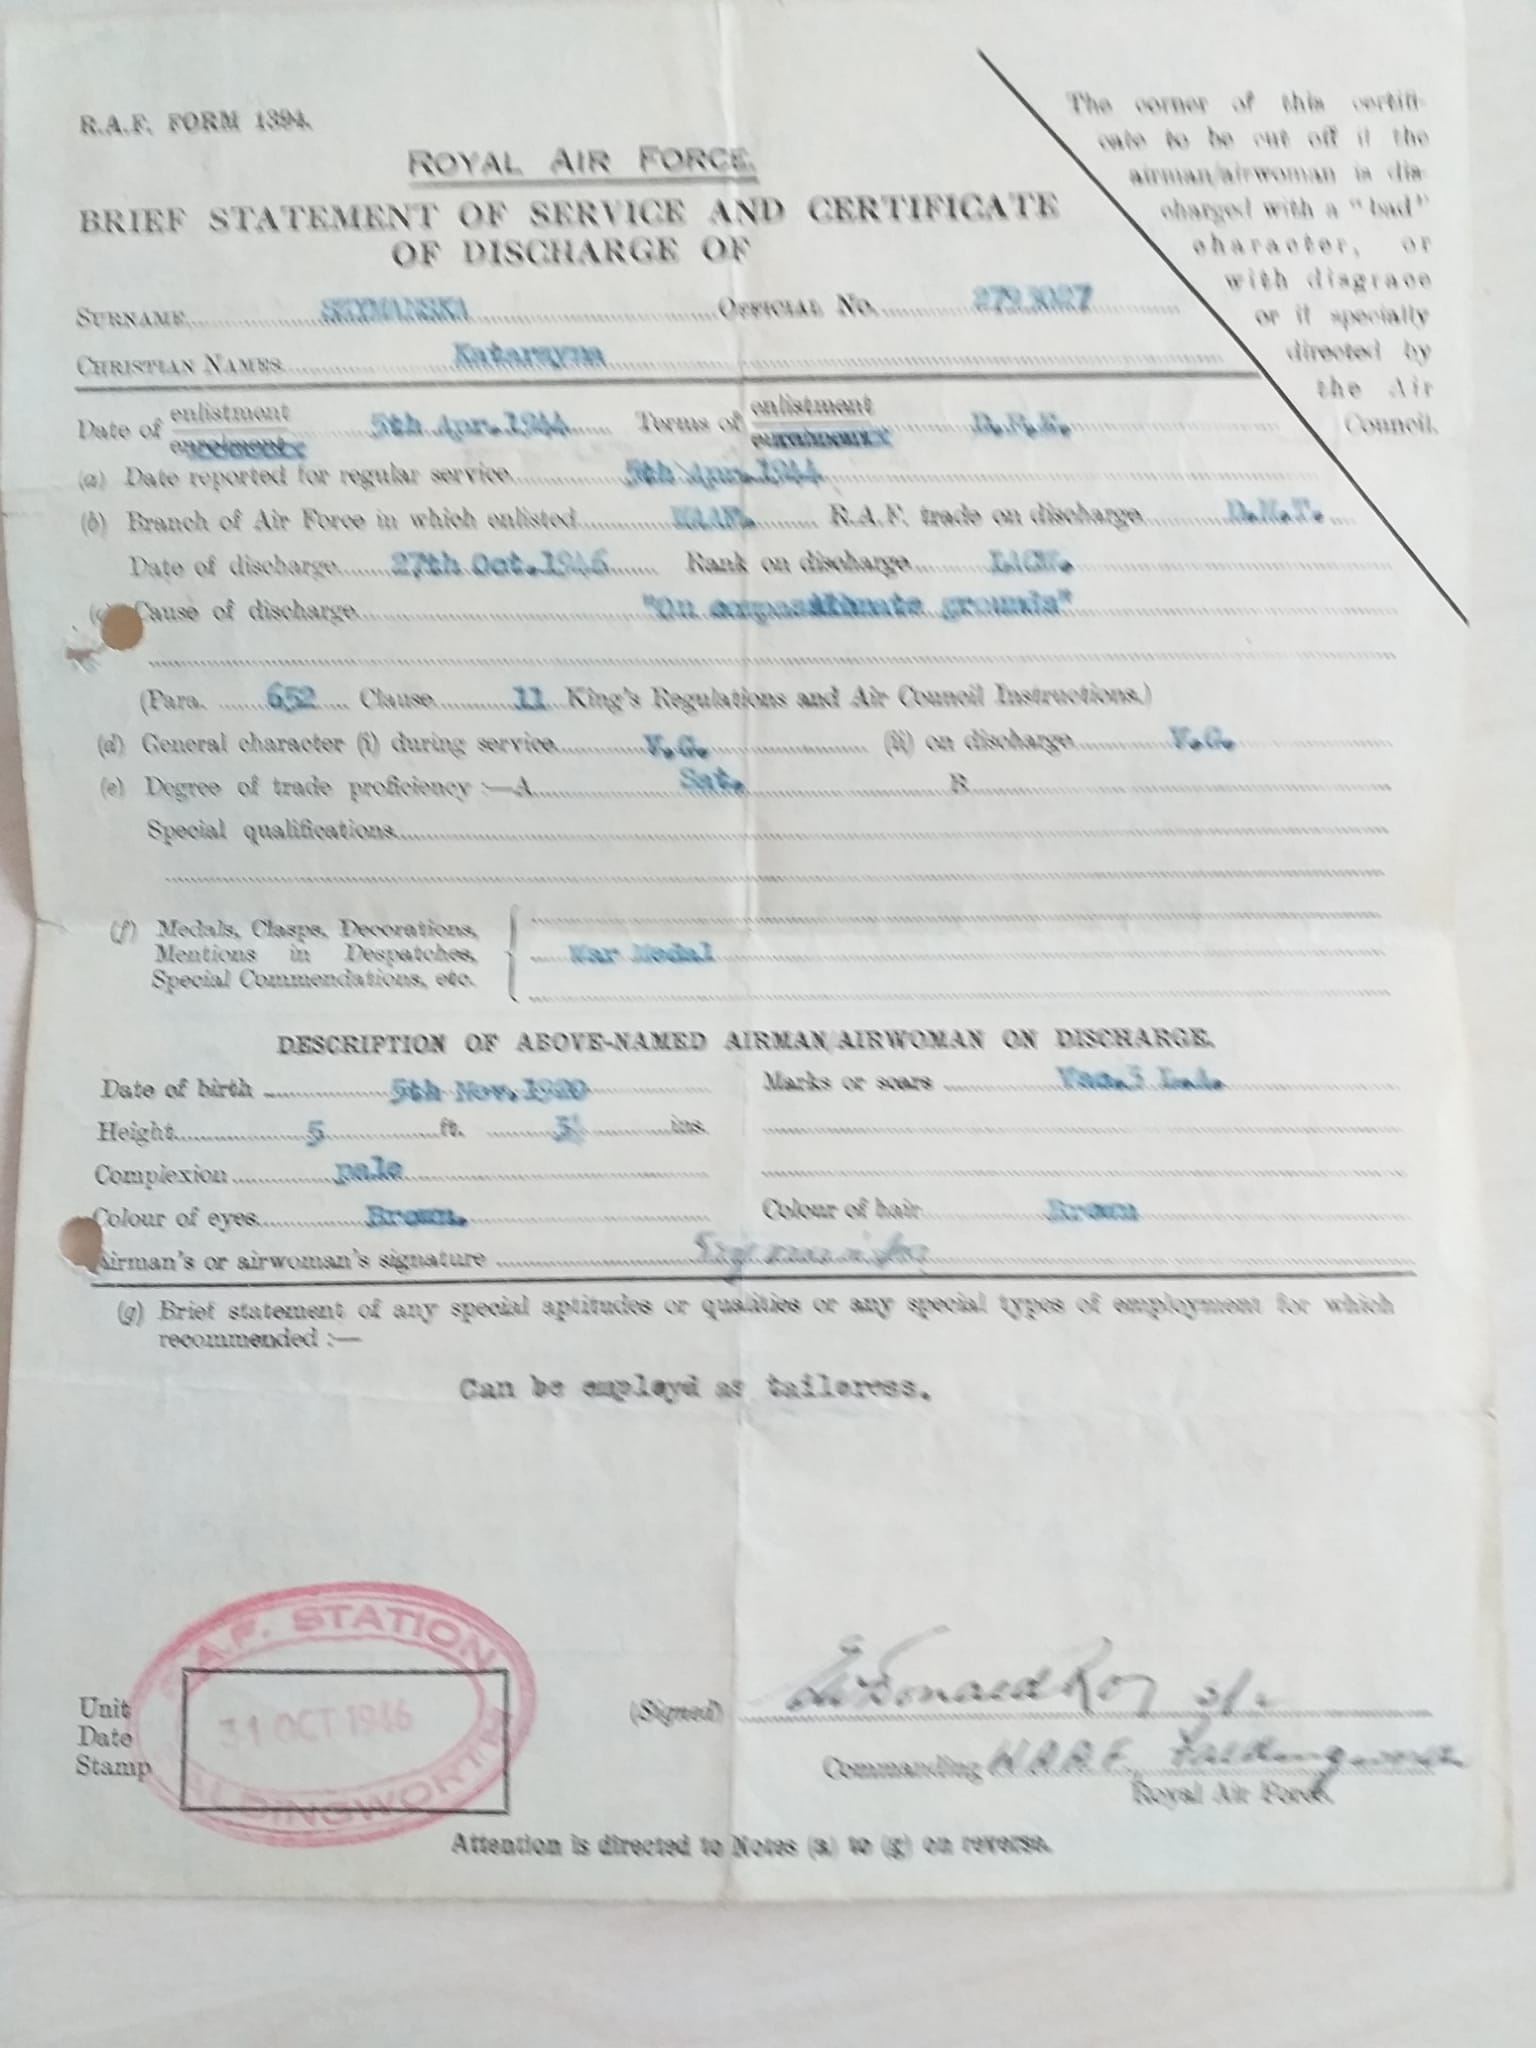 R.A.F. FORM 1394.
ROYAL AIR FORCE.
The corner of this certifi-
cate to be cut off if the
airman/airwoman is dis-
charged with a "bad"
character, or
with disgrace
or if specially
directed by
the Air
Council.
BRIEF STATEMENT OF SERVICE AND CERTIFICATE
OF DISCHARGE OF
SURNAME OFFICIAL No. 2793027
CHRISTIAN NAMES Katarzyna
Date of enlistment 5th Apr.1944 Terms of enlistment D.P.E.
(a) Date reported for regular service 5th Apr.1944
(b) Branch of Air Force in which enlisted WAAF. R.A.F. trade on discharge D.M.T.
Date of discharge 27th Oct.1946 Rank on discharge LACW.
(c) Cause of discharge "On grounds"
(Para. 652 Clause 11 King's Regulations and Air Council Instructions.)
(d) General character (i) during service V.G. (ii) on discharge V.G.
(e) Degree of trade proficiency :—A Sat. B
Special qualifications
(f) Medals, Clasps, Decorations,
Mentions in Despatches,
Special Commendations, etc.
War Medal
DESCRIPTION OF ABOVE-NAMED AIRMAN/AIRWOMAN ON DISCHARGE.
Date of birth 5th Nov.1920 Marks or scars Vac.3 L.A.
Height 5 ft. ins.
Complexion pale
Colour of eyes Brown. Colour of hair Brown
Airman's or airwoman's signature
(g) Brief statement of any special aptitudes or qualities or any special types of employment for which
recommended :—
Can be employd as tailoress.
R.A.F. STATION
FALDINGWORTH
31 OCT 1946
Unit
Date
Stamp
(Signed)
Commanding W.A.A.F. Faldingworth
Royal Air Force.
Attention is directed to Notes (a) to (g) on reverse.